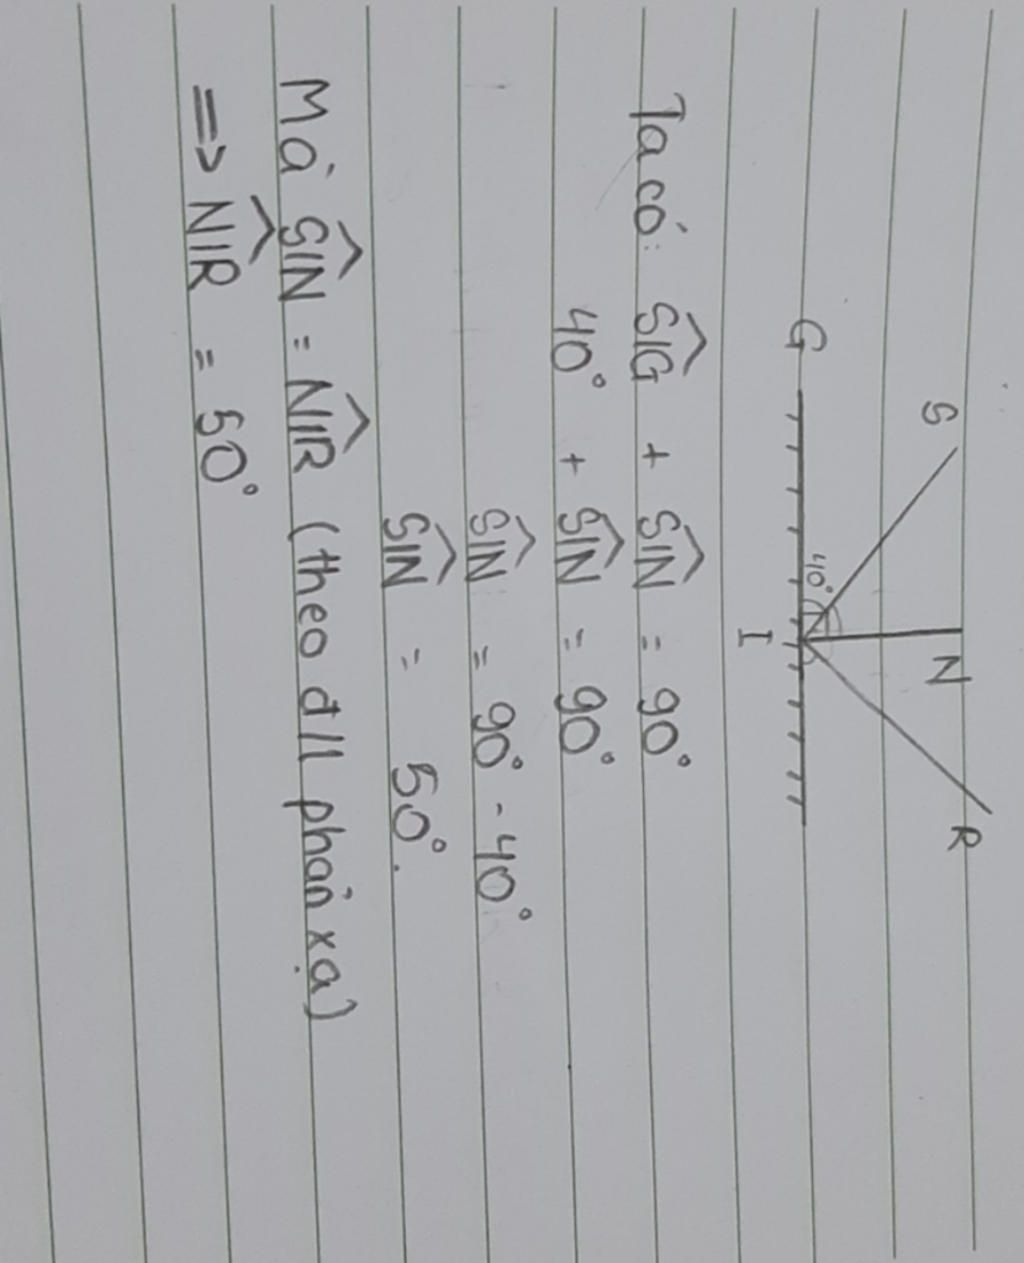 S N R
40°
G I
Ta có: SIG + SIN = 90°
40° + SIN = 90°
SIN = 90° - 40°
SIN = 50°.
Mà SIN = NIR (theo đ/l phản xạ)
=> NIR = 50°